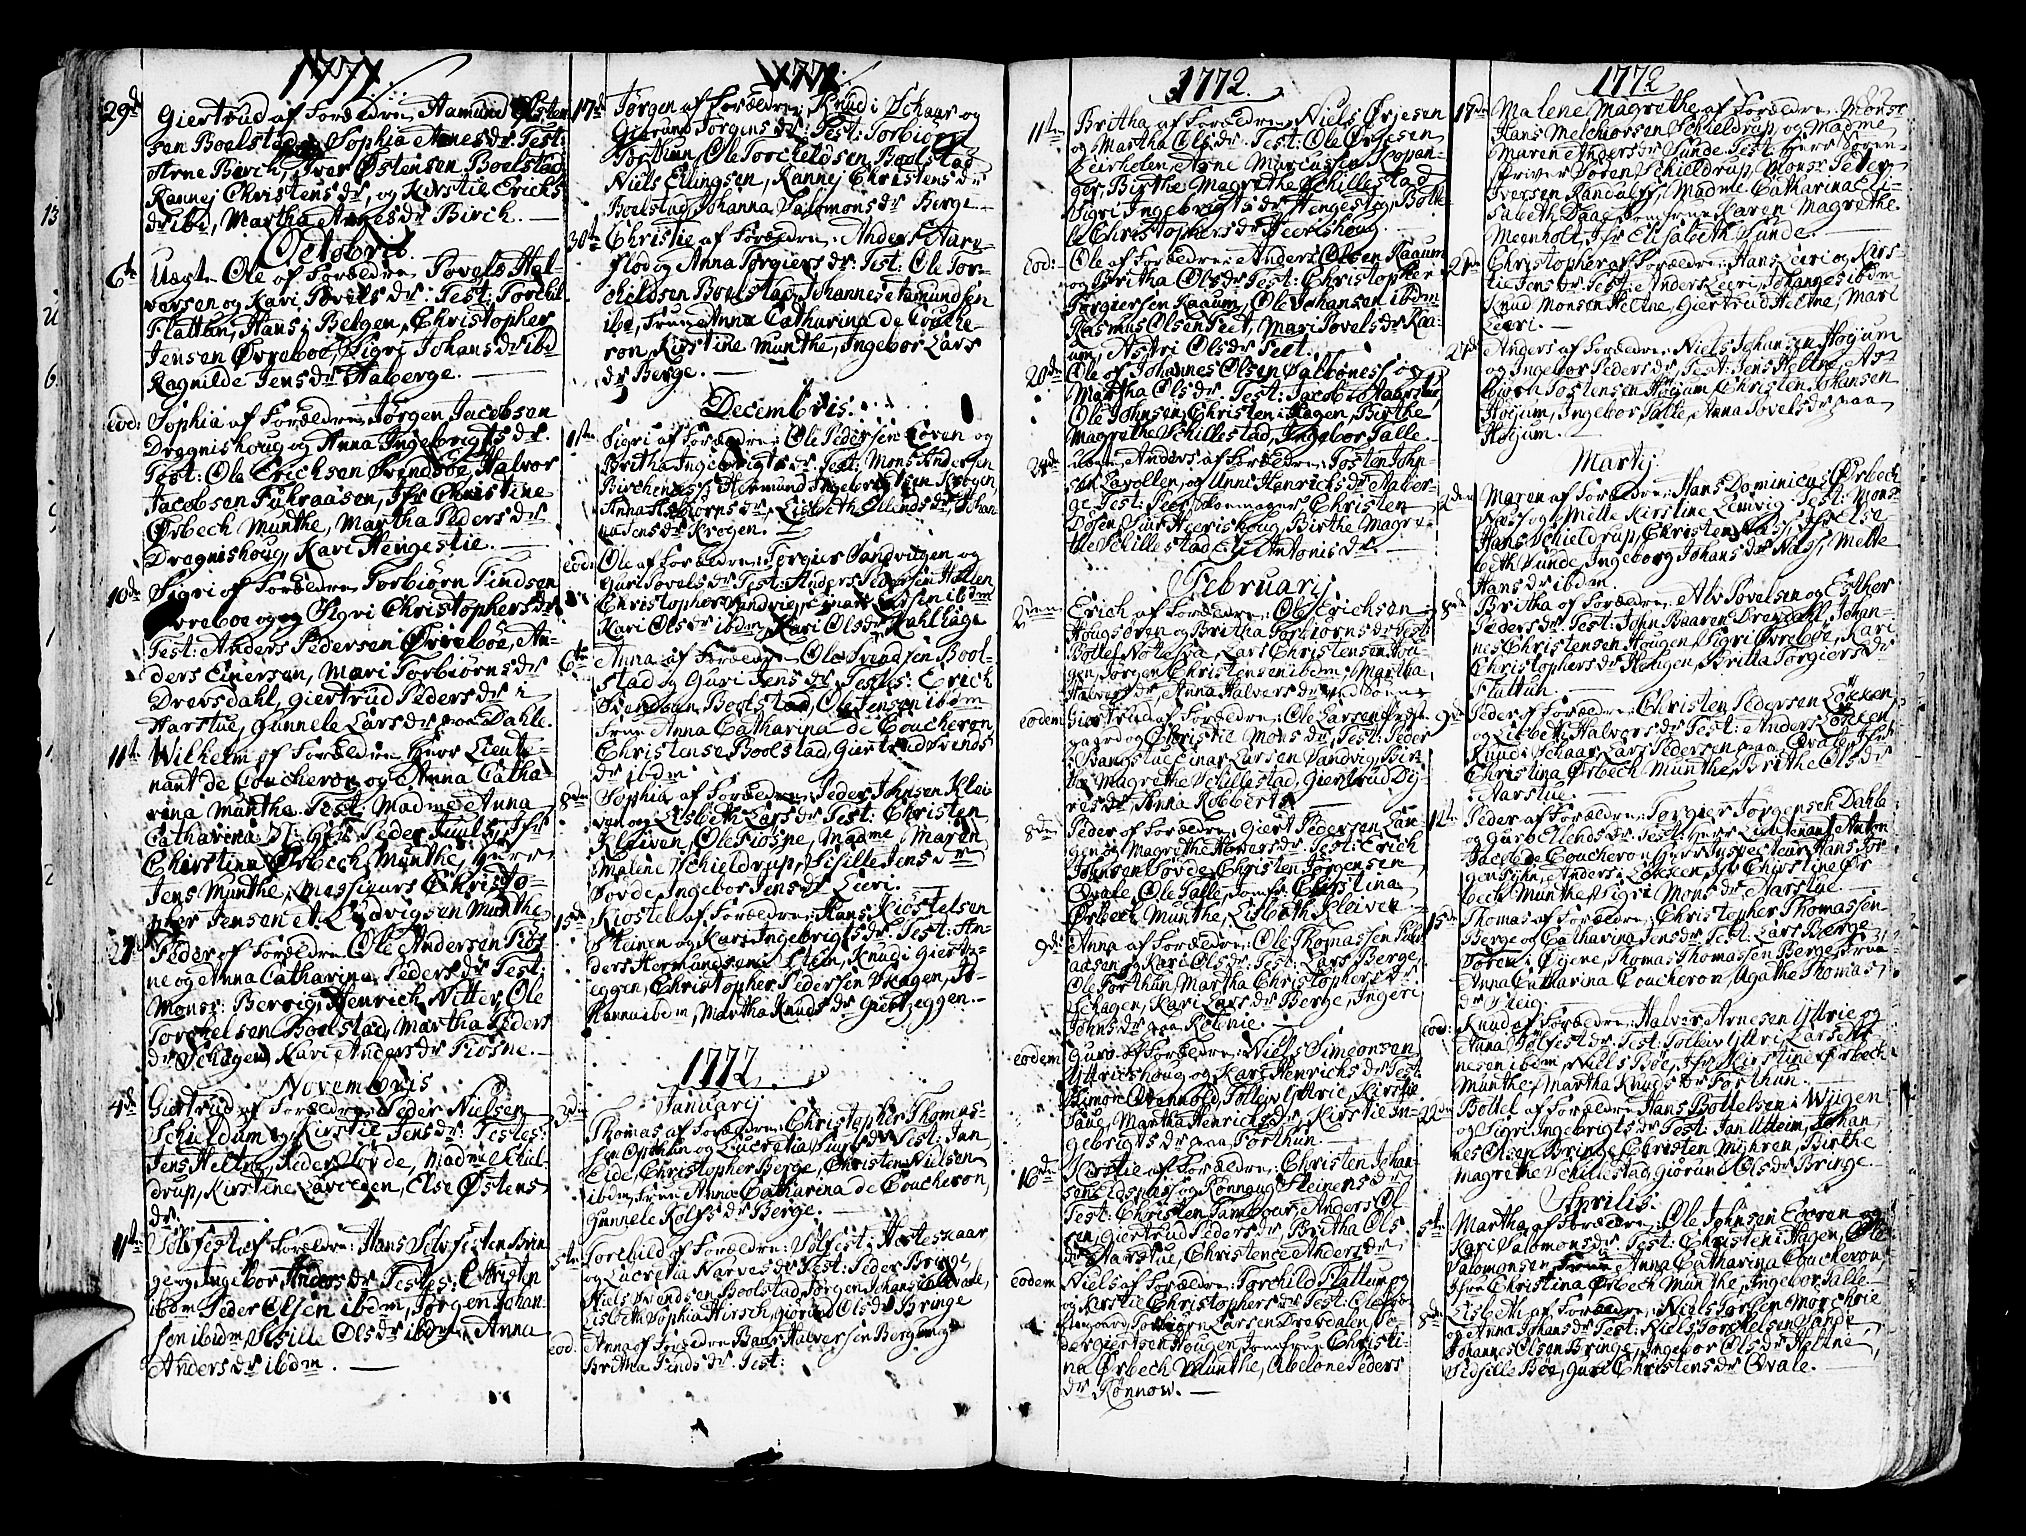 1771
29d Giertrud af Forældre Aamund Østen-
sen Boelstad og Sophia Arnes dr: Test:
Arne Birch, Iver Østensen Boelstad
Rannej Christens dr, og Kirstie Erichs
dr ibd, Martha Arnes dr Birch.
Octobris
6te Uægt. Ole af Forældre Povels Hal-
vorsen og Kari Povels dr: Test: Torchil
Flattun, Hans i Bergen, Christopher
Jensen Øvreboe, Sigri Johans dr ibd
Ragnilde Jens dr Haberge.
eod: Sophia af Forældre Jørgen Jacobsen
Dregnishoug og Anna Ingebrigts dr.
Test: Ole Erichsen Svendsøe, Halvor
Jacobsen Fuhraasen, Jfr Christine
Ørbech Munthe, Martha Peders dr
Dregnishoug, Kari Hengestie.
10de Sigri af Forældre Torbiørn Findsen
Øvreboe og Sigri Christophers dr
Test: Anders Pedersen Øvreboe, An-
ders Einersen, Mari Torbiørns dr
Drevsdahl, Giertrud Peders dr i
Harstue, Gunnele Lars dr paa Dahle.
11te Wilhelm af Forældre Herr Lieute-
nant de Coucheron og Anna Catha-
rina Munthe. Test: Madme Anna
Catharina Sl: Hr: Peder Juuls, Jfr
Christina Ørbech Munthe, Herr
Jens Munthe, Messieurs Christo-
pher Jensen et Ludvigsen Munthe
27de Peder af Forældre Ole Andersen Fiøs-
ne og Anna Catharina Peders dr Test:
Monsr Bervig, Henrich Nitter, Ole
Torchelsen Boelstad, Martha Peders
dr Schagen, Kari Anders dr Fiøsne.
Novembris
4de Giertrud af Forældre Peder Nielsen
Schieldum og Kirstie Jens dr: Testes:
Jens Heltne, Peder Søvde, Madme Schiel-
drup, Kirstine Lavergen, Else Østens
dr.
11te Sølfest af Forældre: Hans Sølfesten Brin
ge og Ingebor Anders dr Testes: Christen
ibdm Peder Olsen ibdm, Jørgen Johan-
sen ibidm, Sisille Ols dr ibdm, Anna
Anders dr ibdm.
1771
17de Jørgen af Forældre: Knud i Schaar og
Giørund Jørgens dr: Test: Torbiørn
Forthun, Ole Torcheldsen Boelstad
Niels Ellingsen, Rannej Christens dr
Boelstad, Johanna Salomons dr Berge
30te Christie af Forældre: Anders Aare-
flod og Anna Torgiers dr: Test: Ole Tor-
childsen Boelstad, Johannes Aamundsen
ibd, Frue Anna Catharina de Couche-
ron, Kirstine Munthe, Ingebor Lars
dr Berge.
Decembris.
1ste Sigri af Forældre: Ole Pedersen Eoven og
Britha Ingebrigts dr. Test: Mons Andersen
Birchenes, Hermund Ingebrigtsen Krogen,
Anna Asbiørns dr, Lisbeth Ellends dr, Johan-
na Jens dr Krogen.
eod: Ole af Forældre: Torgier Sandvigen og
Guri Povels dr Test: Anders Pedersen Holten
Christopher Sandvig, Einar Larsen ibdm
Kari Ols dr ibdm, Kari Ols dr Kahlhage
6te Anna af Forældre Ole Svendsen Bool-
stad og Guri Jens dr Testes: Erich
Svendsen Boolstad, Ole Jensen ibdm
Frue Anna Catharina de Coucheron
Christense Boolstad, Giertrud Svends
dr ibdm
8de Sophia af Forældre: Peder Johnsen Klei-
ven og Lisbeth Lars dr Test: Christen
Kleiven, Ole Fiøsne, Madme Maren
Malene Schieldrup, Sisille Jens dr
Søvde, Ingebor Jens dr Lieri.
15de Kiøstel af Forældre: Hans Kiøstelsen
Steinen og Kari Ingebrigts dr: Test: An-
ders Hermundsen i Steen, Knud i Giertz-
eggen, Christopher Pedersen Skagen, Jo-
hanna ibdm, Martha Knuds dr Giertzeggen.
1772
Januarij
3de Thomas af Forældre: Christopher Thomas-
sen Opthun og Lucretia Siurs dr Test: Jan
Eide, Christopher Berge, Christen Nielsen
ibdm, Frue Anna Catharina de Coucheron,
Gunnele Rolfs dr Berge.
5te Torchild af Forældre: Sølfest Hæstesaar
og Lucretia Narves dr Test: Peder Bringe,
Niels Svendsen Boolstad, Jørgen Johansen Qvale,
Lisbeth Sophia Hirsch, Giørund Ols dr Bringe
eod. Anna af Forældre Baar Halversen Bergum og
Britha Finds dr Test:
1772.
11te Britha af Forældre: Niels Ørjesen
og Martha Ols dr Test: Ole Ørjesen
Leirholen, Arne Marcussen Skopan-
ger, Birthe Magrethe Schillestad
Sigri Ingebrigts dr Hengestie, Botte-
le Christophers dr Heerishoug.
eod: Ole af Forældre: Anders Olsen Kaaum
og Britha Ols dr Test: Christopher
Torgiersen Kaaum, Ole Johansen ibdm
Rasmus Olsen Feet, Mari Povels dr Kaa-
um, Astri Ols dr Feet.
20de Ole af Johannes Olsen Salbones og
Martha Ols dr. Test: Jacob i Haarstue,
Ole Johnsen, Christen i Hagen, Birthe
Magrethe Schillestad, Ingebor Talle
28de Anders af Forældre: Tosten John-
sen Lavollen, og Unni Henrichs dr Haber-
ge. Test: Peer Skomager, Christen
Døsen, Siur Heerishoug, Birthe Magre-
the Schillestad, Eli Antonis dr.
Februarij
2den Erich af Forældre: Ole Erichsen
Hougsøren og Britha Torbiørns dr Test
Bottel Notesva, Lars Christensen Hou-
gen, Jørgen Christensen ibdm, Martha
Halvers dr, Anna Halvers dr ved Søen
eodem Giertrud af Forældre: Ole Larsen Præste-
gaard og Christie Mons dr, Test: Peder
Svangstue, Einar Larsen Sandvig, Bir-
the Magrethe Schillestad, Giertrud Dy-
res dr, Anna Robberts.
8de Peder af Forældre: Giert Pedersen Lan-
gen og Magrethe Hovers dr: Test: Erich
Johnsen Søvde, Christen Jørgensen
Qvale, Ole Talle, Jomfr Christina
Ørbech Munthe, Lisbeth Kleiven
9de Anna af Forældre: Ole Thomassen Fuhr-
aasen og Kari Ols dr: Test: Lars Berge,
Ole Forthun, Martha Christophers dr
Schagen, Kari Lars dr Berge, Ingeri
Johns dr paa Kolonie.
eodem Guro af Forældre: Niels Simeonsen
Yttrishoug og Kari Henrichs dr Test
Simon Ovenvold, Tollev Yttrie, Kirstie
Saue, Martha Henrichs dr, Kirstie In-
gebrigts dr paa Forthun.
16de Kirstie af Forældre: Christen Johan-
sen Eidsnæs og Rønnaug Steinens dr
Test: Christen Tambour, Anders Ol-
sen, Giertrud Peders dr, Britha Ols
dr Harstue, Christence Anders dr
eodem Niels af Forældre: Torchild Flattun og
og Kirstie Christophers dr Test: Ole
Torbiørn Larsen Drevdalen, Pe-
der Giertsen Hougen, Jomfrue Christi-
na Ørbech Munthe, Abelone Peders
dr Rønnow.
1772
17de Malene Magrethe af Forældre: Monsr
Hans Melchiorsen Schieldrup, og Madme
Maren Anders dr Sunde. Test: Herr Soren-
skriver Søren Schieldrup, Monsr Peder
Iversen Randalff, Madme Catharina Eli-
sabeth Daae, Jomfrue Karen Magrethe
Meenholt, Jfr Elisabeth Sunde.
Christopher af Forældre: Hans Lieri og Kirs-
tie Jens dr Test: Anders Lieri, Johannes ibdm
Knud Monsen Heltne, Giertrud Heltne, Mari
Lieri.
27de Anders af Forældre: Niels Johansen Høyum
og Ingebor Peders dr, Test: Jens Heltne, As-
biørn Tostensen Høyum, Christen Johansen
Høyum, Ingebor Talle, Anna Povels dr paa
Høyum.
Martij.
2den Maren af Forældre: Hans Dominicus Ørbech
Næss og Mette Kirstine Lemvig. Test: Monsr
Hans Schieldrup, Christen Næss, Jfr Elsa-
beth Sunde, Ingeborg Johans dr Næss, Mette
Hans dr ibdm.
8de Britha af Forældre: Alv Povelsen og Esther
Peders dr. Test: John Baaren Drevdahl, Johan-
nis Christensen Hougen, Sigri Øvreboe, Kari
Christophers dr Hougen, Britha Torgiers dr
Flattun.
9de Peder af Forældre: Christen Pedersen Løkken
og Lisbeth Halvers dr Test: Anders Løkken
Knud i Schaar, Lars Pedersen paa Qvale, Jfr
Christina Ørbech Munthe, Brithe Ols dr
Harstue.
12te Peder af Forældre: Torgier Jørgensen Dahle
og Guro Ellends dr. Test: Herr Lieutenant Anton
Jacob de Coucheron, Herr Inspecteur Hans Jør-
gensohn, Anders i Løkken, Jfr Christine Ør-
bech Munthe, Sigri Mons dr Harstue.
15de Thomas af Forældre: Christopher Thomassen
Berge og Catharina Jens dr Test: Lars Berge,
Søren i Øiene, Thomas Thomassen Berge, Frue
Anna Catharina Coucheron, Agathe Thomas
dr Steig.
eod: Knud af Forældre: Halver Arnesen Yttrie og
Anna Sølfest dr. Test: Tollev Yttri, Lars Ar-
nesen ibdm, Niels Bøe, Jfr Kirstine Ørbech
Munthe, Martha Knuds dr Forthun.
22de Bottel af Forældre Hans Bottelsen Wiigen
og Sigri Ingebrigts dr Test: Jan Uttlem, Johan-
nes Olsen Bringe, Christen Myhren, Birthe
Magrethe Schillestad, Giørund Ols dr Bringe.
Aprilis.
5te Martha af Forældre: Ole Johnsen Eoren og
Kari Salomons dr Test: Christen i Hagen, Ole
Salomonsen, Frue Anna Catharina Coucheron,
Jfru Christina Ørbech Munthe, Ingebor Talle
8de Lisbeth af Forældre: Niels Torsen Mørchrie
og Anna Johans dr Test: Niels Torchelsen Sande,
Johannes Olsen Bringe, Ingebor Ols dr Heltne,
Sidsille Bøe, Guri Christens dr Qvale.